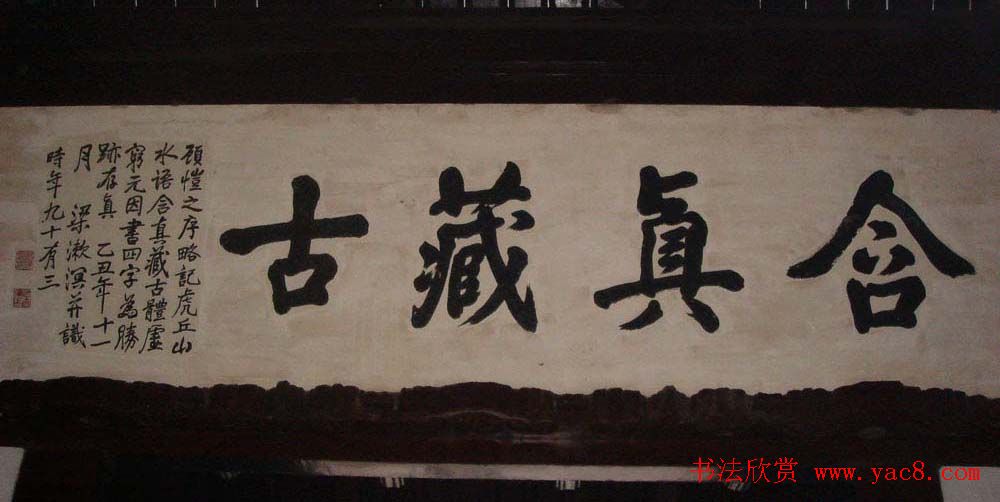 含真藏古
顧愷之序略記虎丘山
水語含真藏古體虛
窮元因書四字為勝
跡存真 乙丑年十一
月 梁漱溟并識
時年九十有三
书法欣赏 www.yac8.com